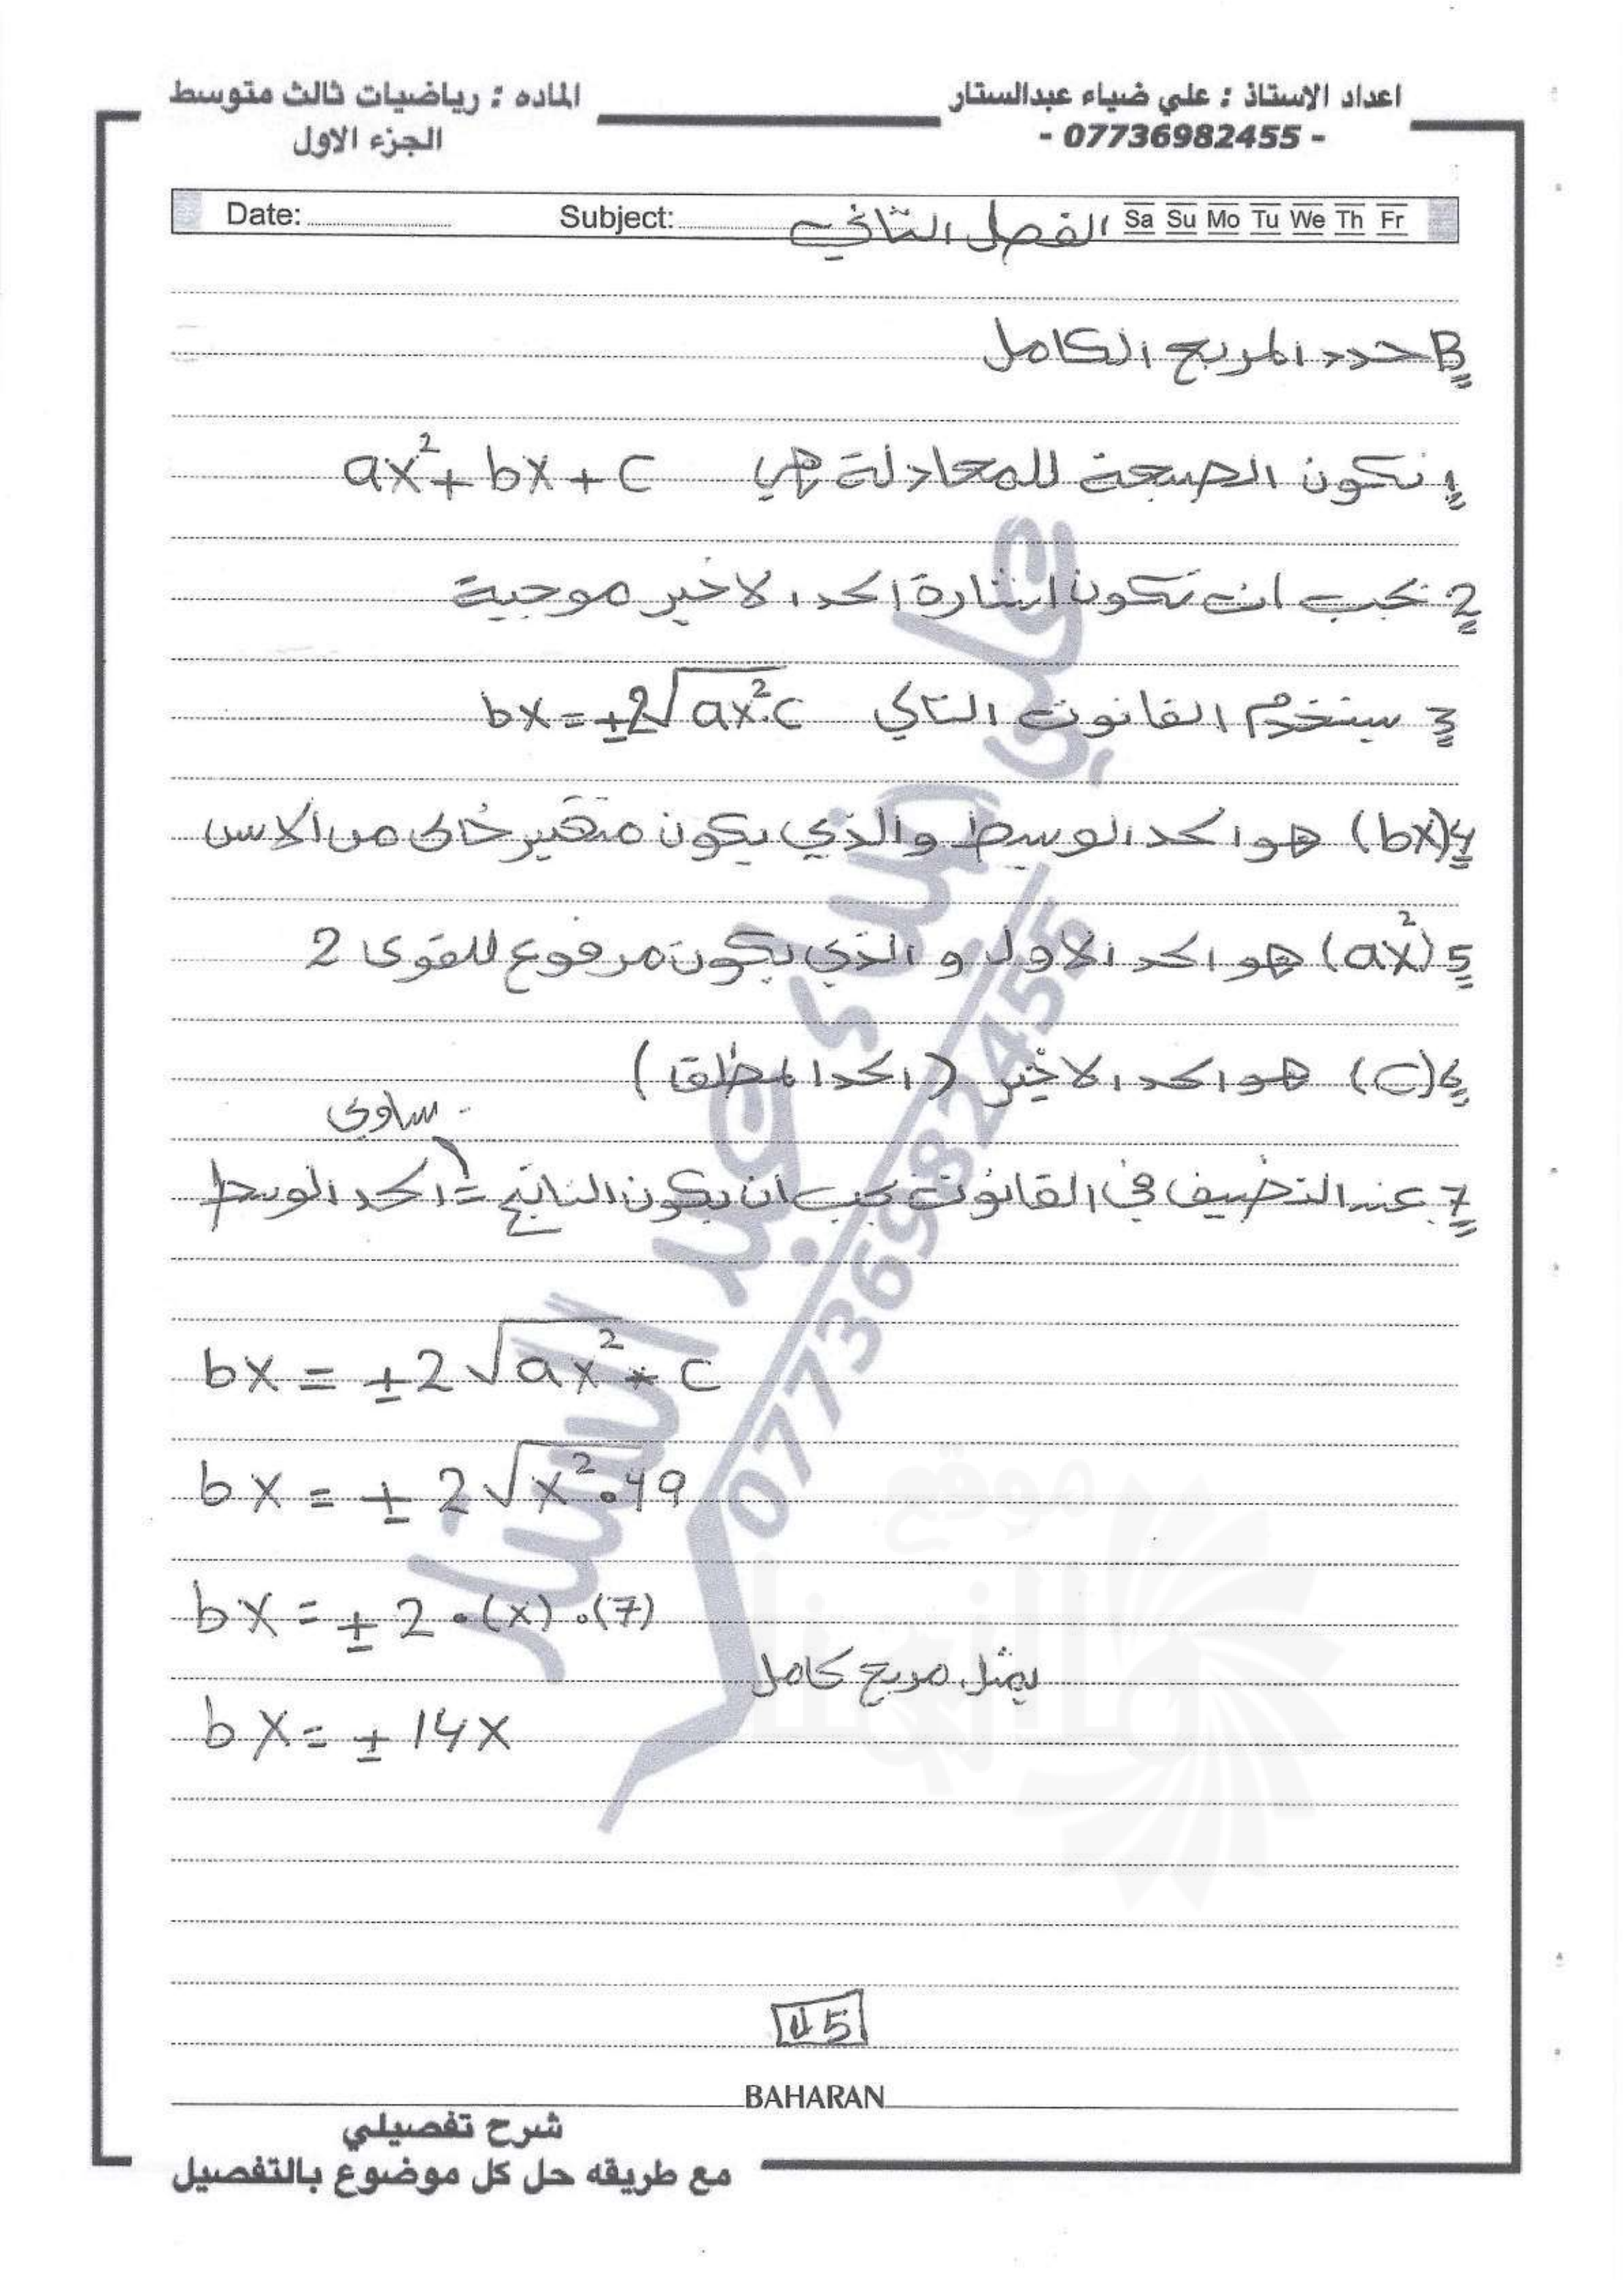 اعداد الاستاذ : علي ضياء عبدالستار
- 07736982455 -
الماده : رياضيات ثالث متوسط
الجزء الاول
Date: Subject: الفصل الثاني Sa Su Mo Tu We Th Fr
B حدد المربع الكامل
1 نكون الصيغة للمعادلة هي ax²+bx+c
2 يجب ان تكون اشارة الحد الاخير موجبة
3 سنخدم القانون التالي bx=±2√ax².c
4 (bx) هو الحد الوسط والذي يكون متغير خالي من الاس
5 (ax²) هو الحد الاول والذي يكون مرفوع للقوى 2
6 (c) هو الحد الاخير (الحد المطلق)
يساوي
7 عند التضيف في القانون يجب ان يكون الناتج = الحد الوسط
bx = ±2√ax² * c
bx = ± 2√x² . 49
bx = ± 2 . (x) . (7)
يمثل مربع كامل
bx = ± 14x
علي ضياء عبد الستار
07736982455
موقع
45
BAHARAN
شرح تفصيلي
مع طريقه حل كل موضوع بالتفصيل